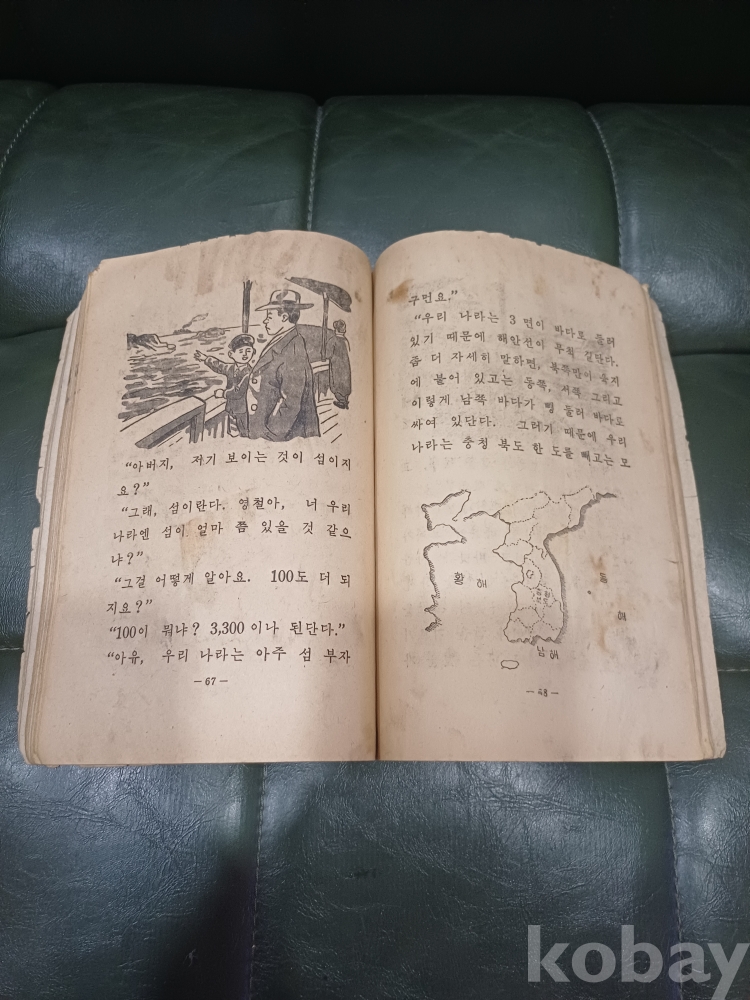 “아버지, 저기 보이는 것이 섬이지
요?”
“그래, 섬이란다. 영철아, 너 우리
나라엔 섬이 얼마 쯤 있을 것 같으
냐?”
“그걸 어떻게 알아요. 100도 더 되
지요?”
“100이 뭐냐? 3,300이나 된단다.”
“아유, 우리 나라는 아주 섬 부자
— 67 —
구먼요.”
“우리 나라는 3 면이 바다로 둘러
있기 때문에 해안선이 무척 길단다.
좀 더 자세히 말하면, 북쪽만이 육지
에 붙어 있고는 동쪽, 서쪽 그리고
이렇게 남쪽 바다가 삥 둘러 바다로
싸여 있단다. 그러기 때문에 우리
나라는 충청 북도 한 도를 빼고는 모
황해
동해
남해
— 68 —
kobay